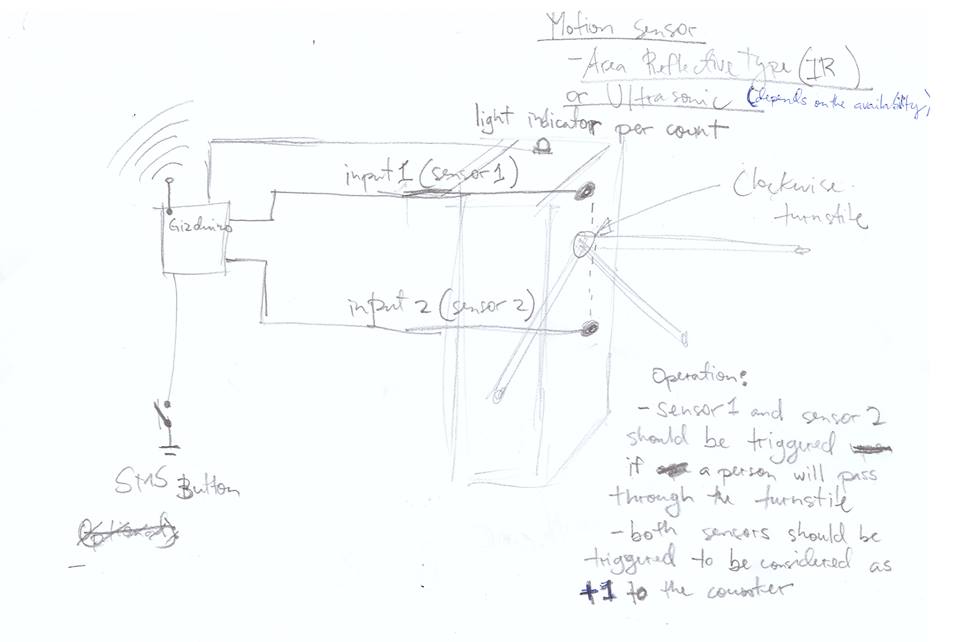 Motion sensor
- Area Reflective type (IR)
or Ultrasonic (depends on the availability)
light indicator per count
input 1 (sensor 1)
Clockwise
turnstile
Gizduino
input 2 (sensor 2)
Operation:
- sensor 1 and sensor 2
should be triggered
if a person will pass
through the turnstile
- both sensors should be
triggered to be considered as
+1 to the counter
SMS Button
(Optional)
-